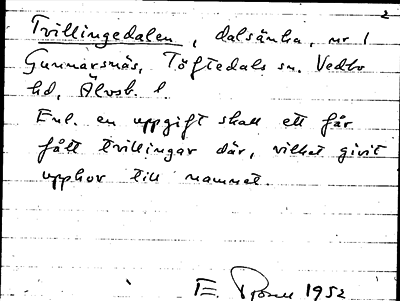 2
Trillingedalen, dalsänka, nr 1
Gunnarsnäs, Töftedals sn. Vedbo
hd, Älvsb. l.
Enl. en uppgift skall ett får
fått trillingar där, vilket givit
upphov till namnet.
E. 1952